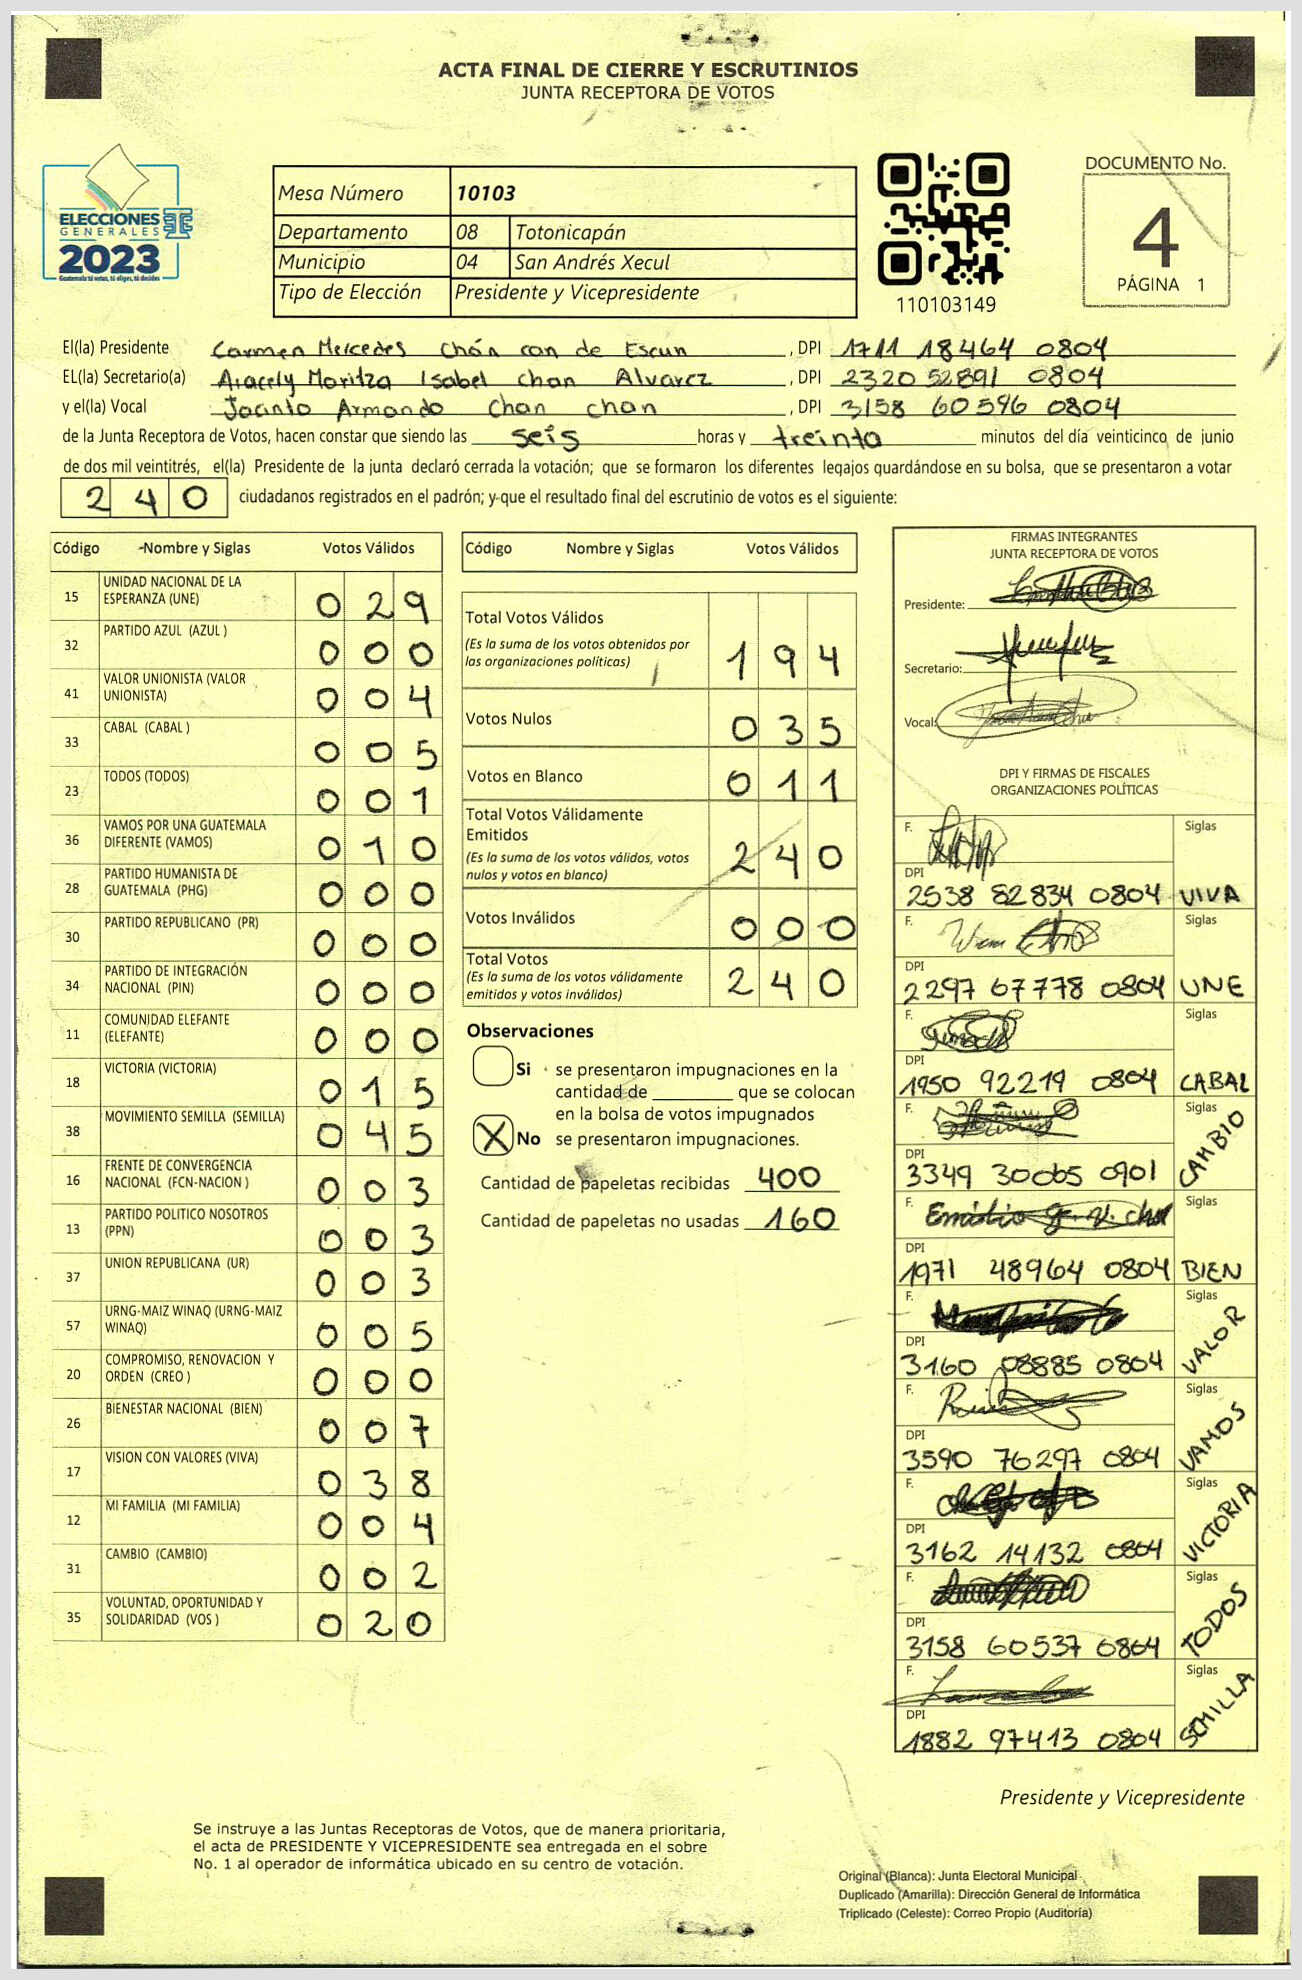 ACTA FINAL DE CIERRE Y ESCRUTINIOS
JUNTA RECEPTORA DE VOTOS
ELECCIONES
GENERALES
2023
Guatemala tú votas, tú eliges, tú decides
Mesa Número 10103
Departamento 08 Totonicapán
Municipio 04 San Andrés Xecul
Tipo de Elección Presidente y Vicepresidente
110103149
DOCUMENTO No.
4
PÁGINA 1
El(la) Presidente Carmen Mercedes Chán can de Escun, DPI 1711 18464 0804
EL(la) Secretario(a) Aracely Maritza Isabel Chan Alvarez, DPI 2320 52891 0804
y el(la) Vocal Jacinto Armando Chan chan, DPI 3158 60596 0804
de la Junta Receptora de Votos, hacen constar que siendo las seis horas y treinta minutos del día veinticinco de junio
de dos mil veintitrés, el(la) Presidente de la junta declaró cerrada la votación; que se formaron los diferentes legajos quardándose en su bolsa, que se presentaron a votar
240 ciudadanos registrados en el padrón; y que el resultado final del escrutinio de votos es el siguiente:
Código Nombre y Siglas Votos Válidos
15 UNIDAD NACIONAL DE LA ESPERANZA (UNE) 029
32 PARTIDO AZUL (AZUL ) 000
41 VALOR UNIONISTA (VALOR UNIONISTA) 004
33 CABAL (CABAL ) 005
23 TODOS (TODOS) 001
36 VAMOS POR UNA GUATEMALA DIFERENTE (VAMOS) 010
28 PARTIDO HUMANISTA DE GUATEMALA (PHG) 000
30 PARTIDO REPUBLICANO (PR) 000
34 PARTIDO DE INTEGRACIÓN NACIONAL (PIN) 000
11 COMUNIDAD ELEFANTE (ELEFANTE) 000
18 VICTORIA (VICTORIA) 015
38 MOVIMIENTO SEMILLA (SEMILLA) 045
16 FRENTE DE CONVERGENCIA NACIONAL (FCN-NACION ) 003
13 PARTIDO POLITICO NOSOTROS (PPN) 003
37 UNION REPUBLICANA (UR) 003
57 URNG-MAIZ WINAQ (URNG-MAIZ WINAQ) 005
20 COMPROMISO, RENOVACION Y ORDEN (CREO ) 000
26 BIENESTAR NACIONAL (BIEN) 007
17 VISION CON VALORES (VIVA) 038
12 MI FAMILIA (MI FAMILIA) 004
31 CAMBIO (CAMBIO) 002
35 VOLUNTAD, OPORTUNIDAD Y SOLIDARIDAD (VOS ) 020
Código Nombre y Siglas Votos Válidos
Total Votos Válidos
(Es la suma de los votos obtenidos por
las organizaciones políticas) 194
Votos Nulos 035
Votos en Blanco 011
Total Votos Válidamente
Emitidos
(Es la suma de los votos válidos, votos
nulos y votos en blanco) 240
Votos Inválidos 000
Total Votos
(Es la suma de los votos válidamente
emitidos y votos inválidos) 240
Observaciones
Si se presentaron impugnaciones en la
cantidad de ________ que se colocan
en la bolsa de votos impugnados
X No se presentaron impugnaciones.
Cantidad de papeletas recibidas 400
Cantidad de papeletas no usadas 160
FIRMAS INTEGRANTES
JUNTA RECEPTORA DE VOTOS
Presidente:
Secretario:
Vocal:
DPI Y FIRMAS DE FISCALES
ORGANIZACIONES POLÍTICAS
F. Siglas
DPI
2538 82834 0804 VIVA
F. Siglas
DPI
2297 67778 0804 UNE
F. Siglas
DPI
1950 92219 0804 CABAL
F. Siglas
DPI
3349 30065 0901 CAMBIO
F. Siglas
DPI
1971 48964 0804 BIEN
F. Siglas
DPI
3160 08885 0804 VALOR
F. Siglas
DPI
3590 76297 0804 VAMOS
F. Siglas
DPI
3162 14132 0804 VICTORIA
F. Siglas
DPI
3158 60537 0804 TODOS
F. Siglas
DPI
1882 97413 0804 SEMILLA
Presidente y Vicepresidente
Se instruye a las Juntas Receptoras de Votos, que de manera prioritaria,
el acta de PRESIDENTE Y VICEPRESIDENTE sea entregada en el sobre
No. 1 al operador de informática ubicado en su centro de votación.
Original (Blanca): Junta Electoral Municipal
Duplicado (Amarilla): Dirección General de Informática
Triplicado (Celeste): Correo Propio (Auditoría)